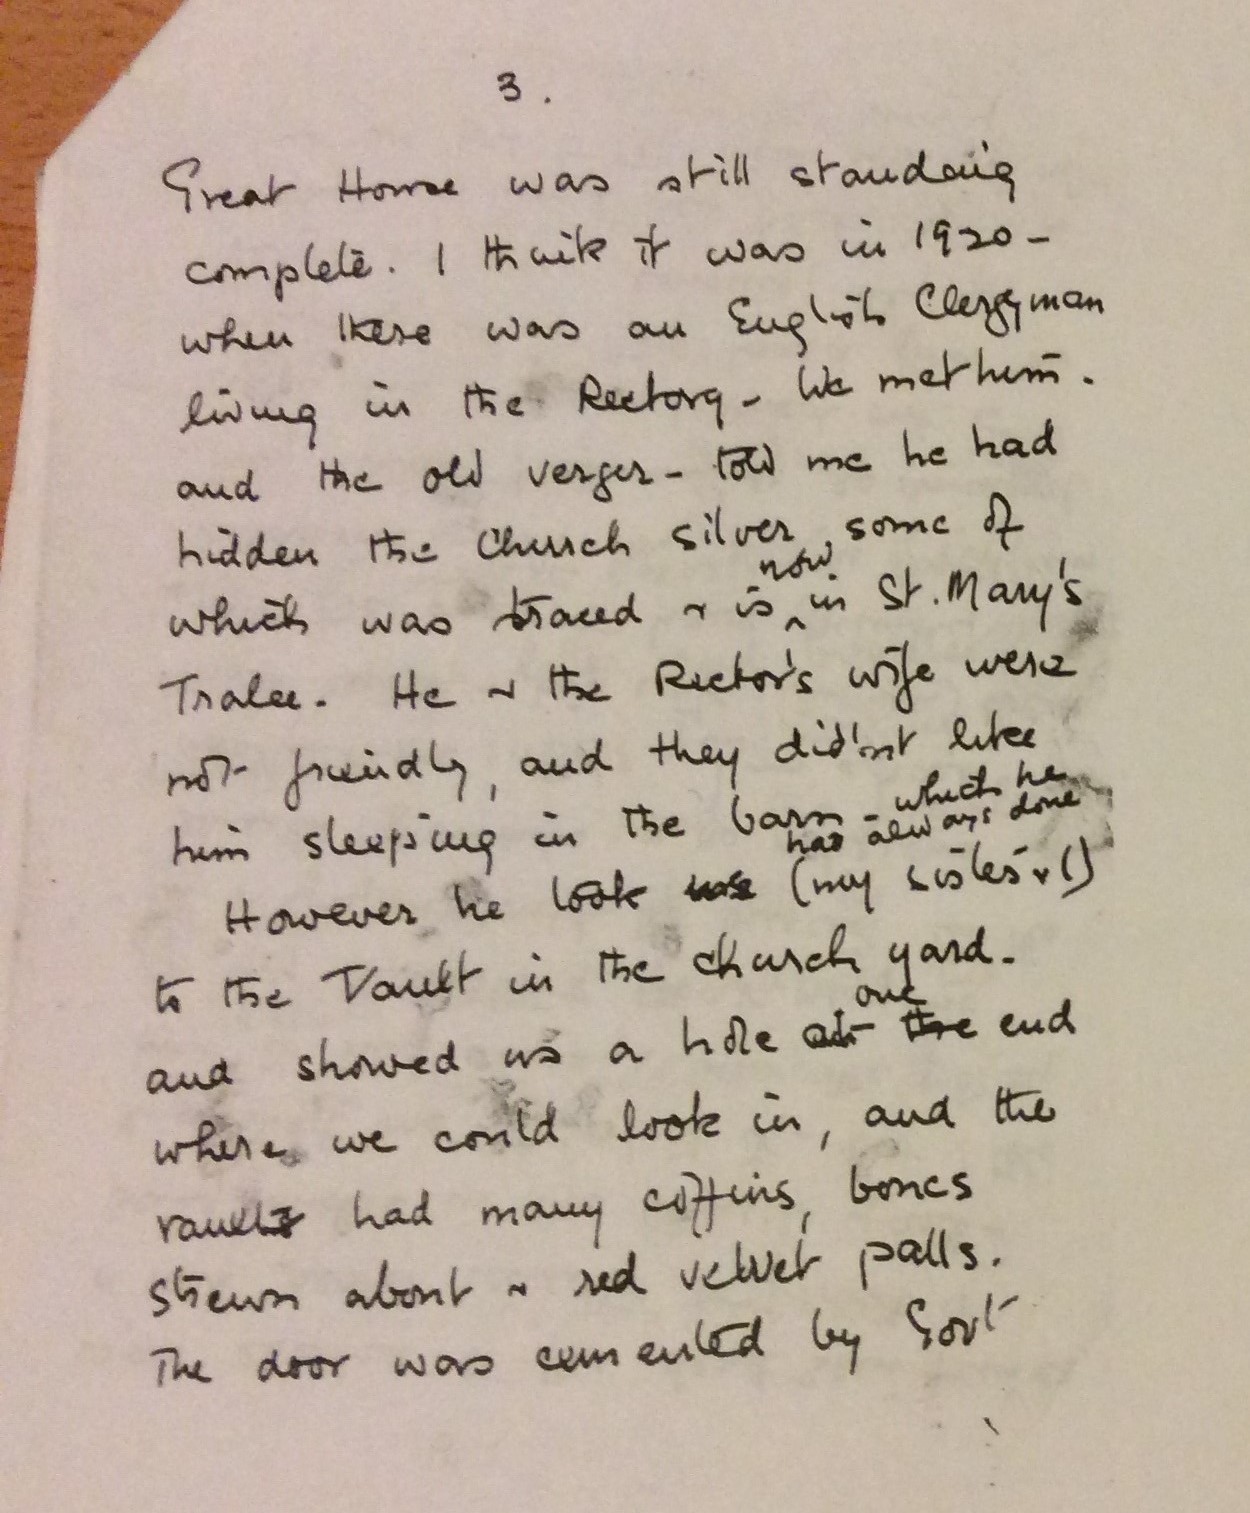 3.
Great House was still standing
complete. I think it was in 1920 -
when there was an English Clergyman
living in the Rectory - We met him.
and the old verger - told me he had
hidden the Church silver, some of
which was traced & is now in St. Mary's
Tralee. He & the Rector's wife were
not friendly, and they did'nt like
him sleeping in the barn - which he
had always done
However he took (my sister & I)
to the Vault in the church yard -
and showed us a hole at one end
where we could look in, and the
vault had many coffins, bones
strewn about & red velvet palls.
The door was cemented by Govt